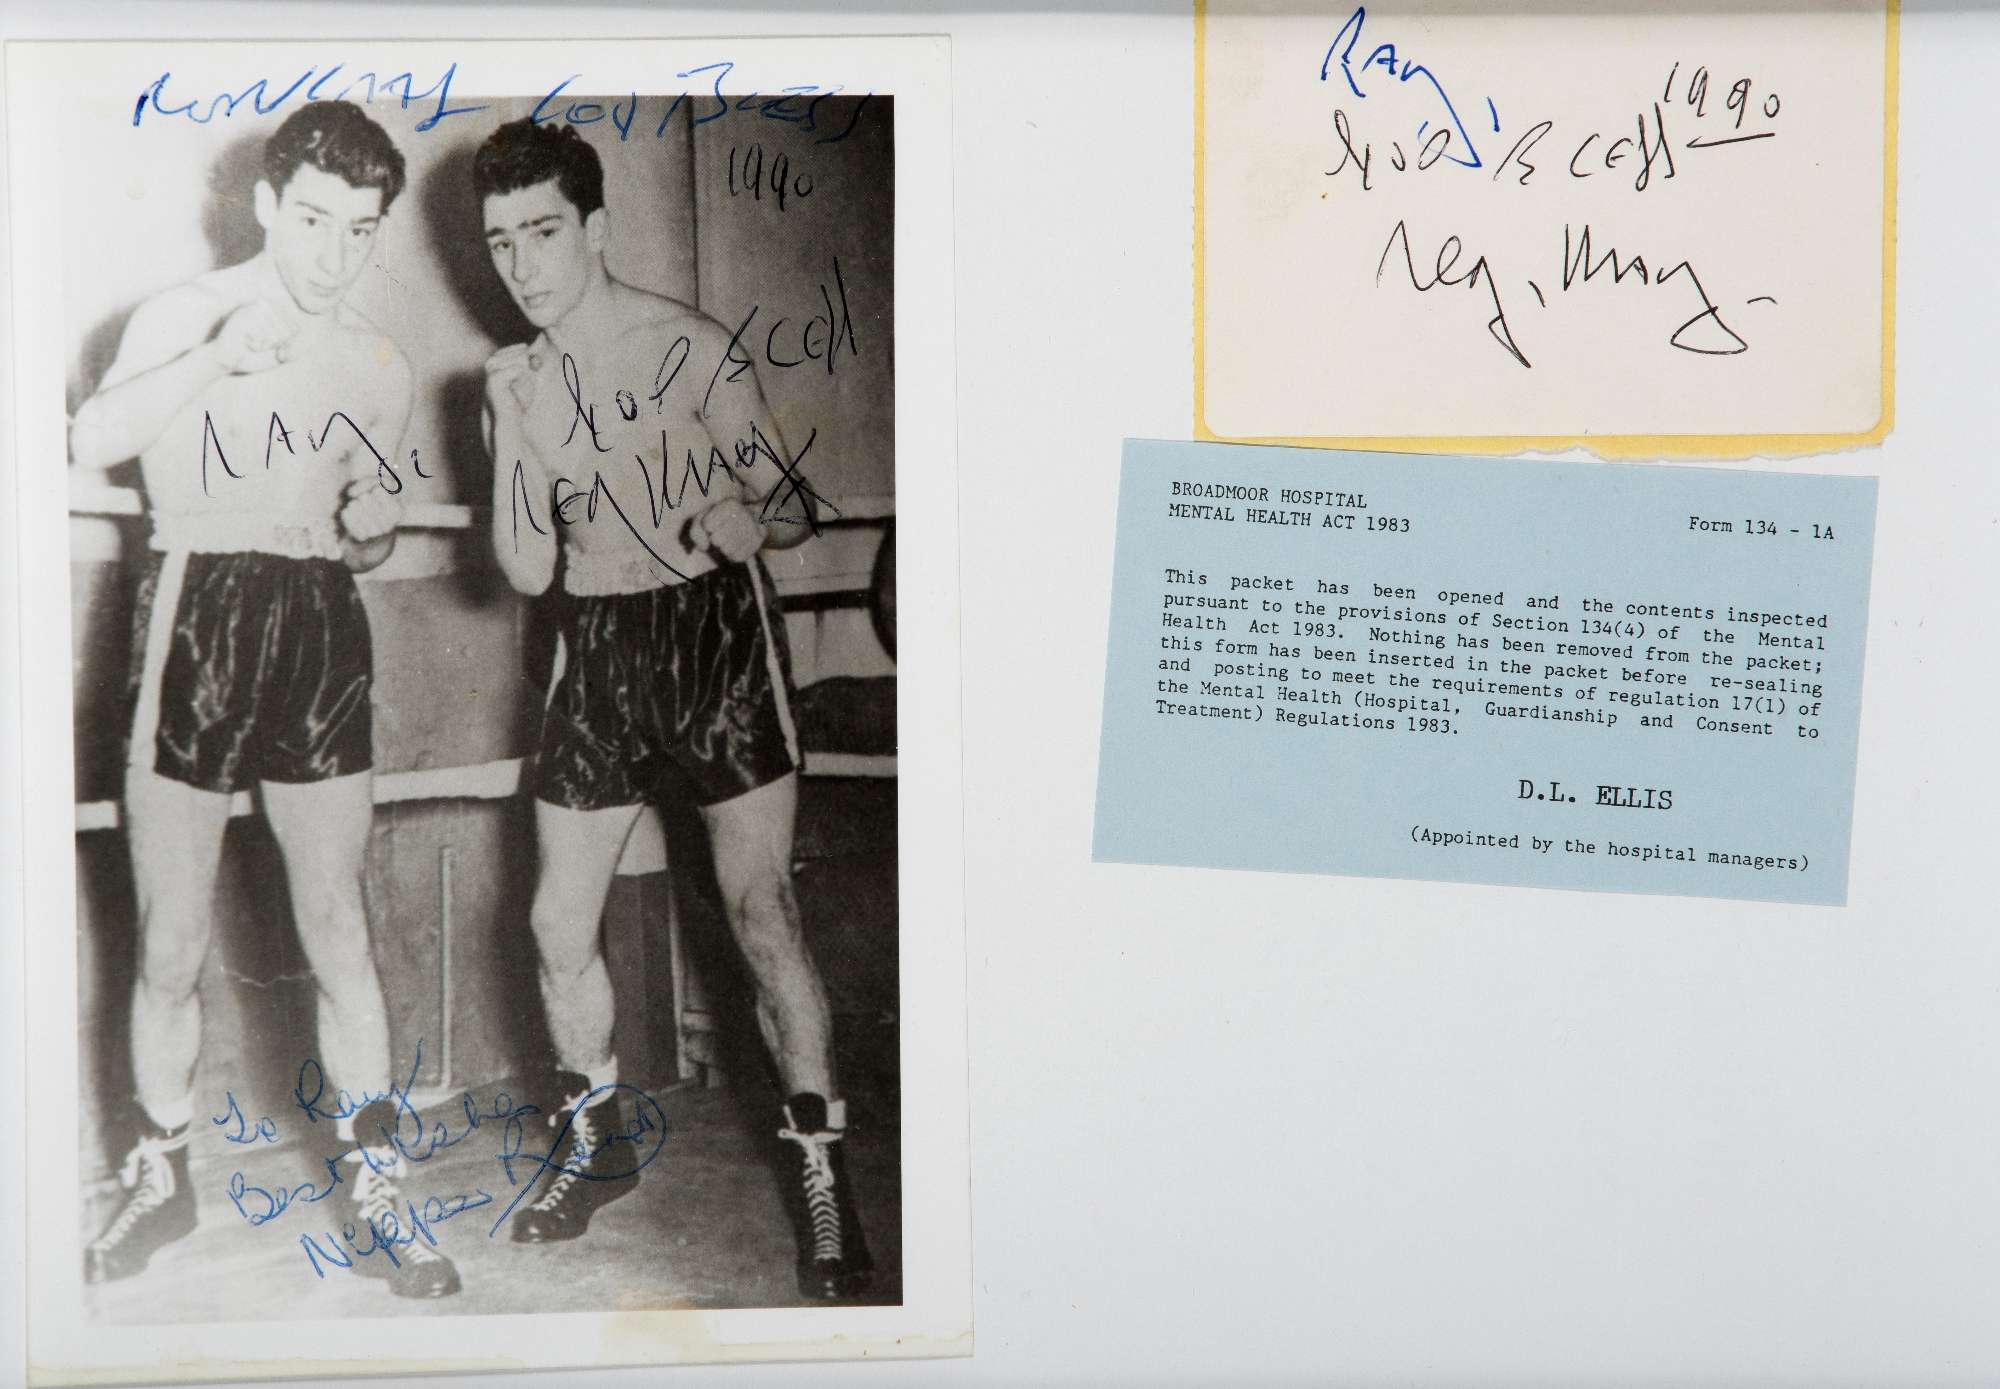 RON KRAY GOD BLESS
1990
RAY,
GOD BLESS
REG KRAY
To Ray
Best Wishes
Nipper Read
RAY,
1990
GOD BLESS
Reg. Kray -
BROADMOOR HOSPITAL
MENTAL HEALTH ACT 1983
Form 134 - 1A
This packet has been opened and the contents inspected
pursuant to the provisions of Section 134(4) of the Mental
Health Act 1983. Nothing has been removed from the packet;
this form has been inserted in the packet before re-sealing
and posting to meet the requirements of regulation 17(1) of
the Mental Health (Hospital, Guardianship and Consent to
Treatment) Regulations 1983.
D.L. ELLIS
(Appointed by the hospital managers)